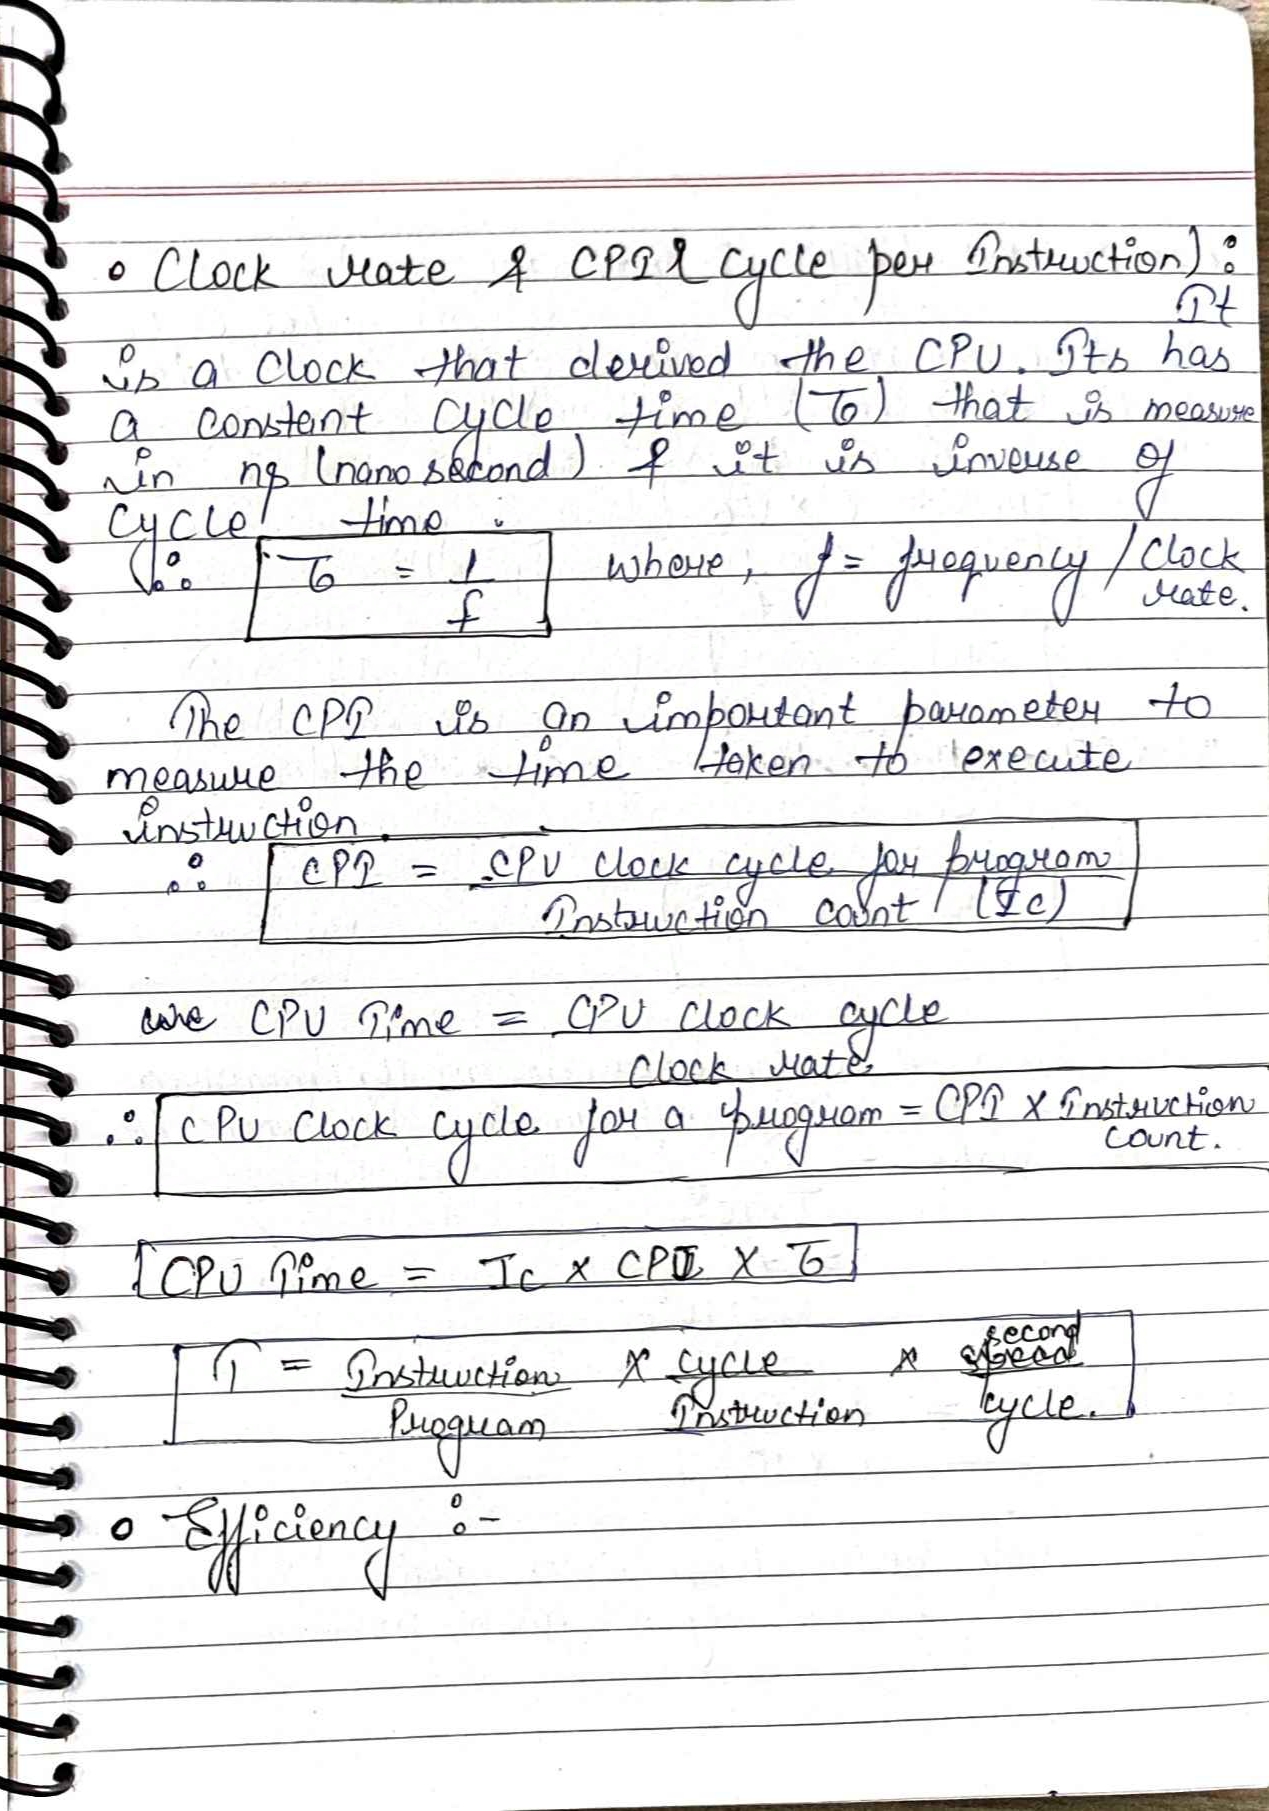 o Clock rate & CPI ( Cycle per Instruction) :
It
is a Clock that derived the CPU. Its has
a constant Cycle time (τ) that is measure
in ns (nano second) & it is inverse of
Cycle time .
∴ τ = 1/f where, f = frequency / Clock
rate.
The CPI is an important parameter to
measure the time taken to execute
instruction
∴ CPI = CPU clock cycle for program
Instruction count (Ic)
CPU Time = CPU clock cycle
Clock rate
∴ CPU Clock Cycle for a program = CPI X Instruction
Count.
CPU Time = Ic x CPI X τ
T = Instruction/Program X cycle/Instruction x second/cycle.
o Efficiency :-